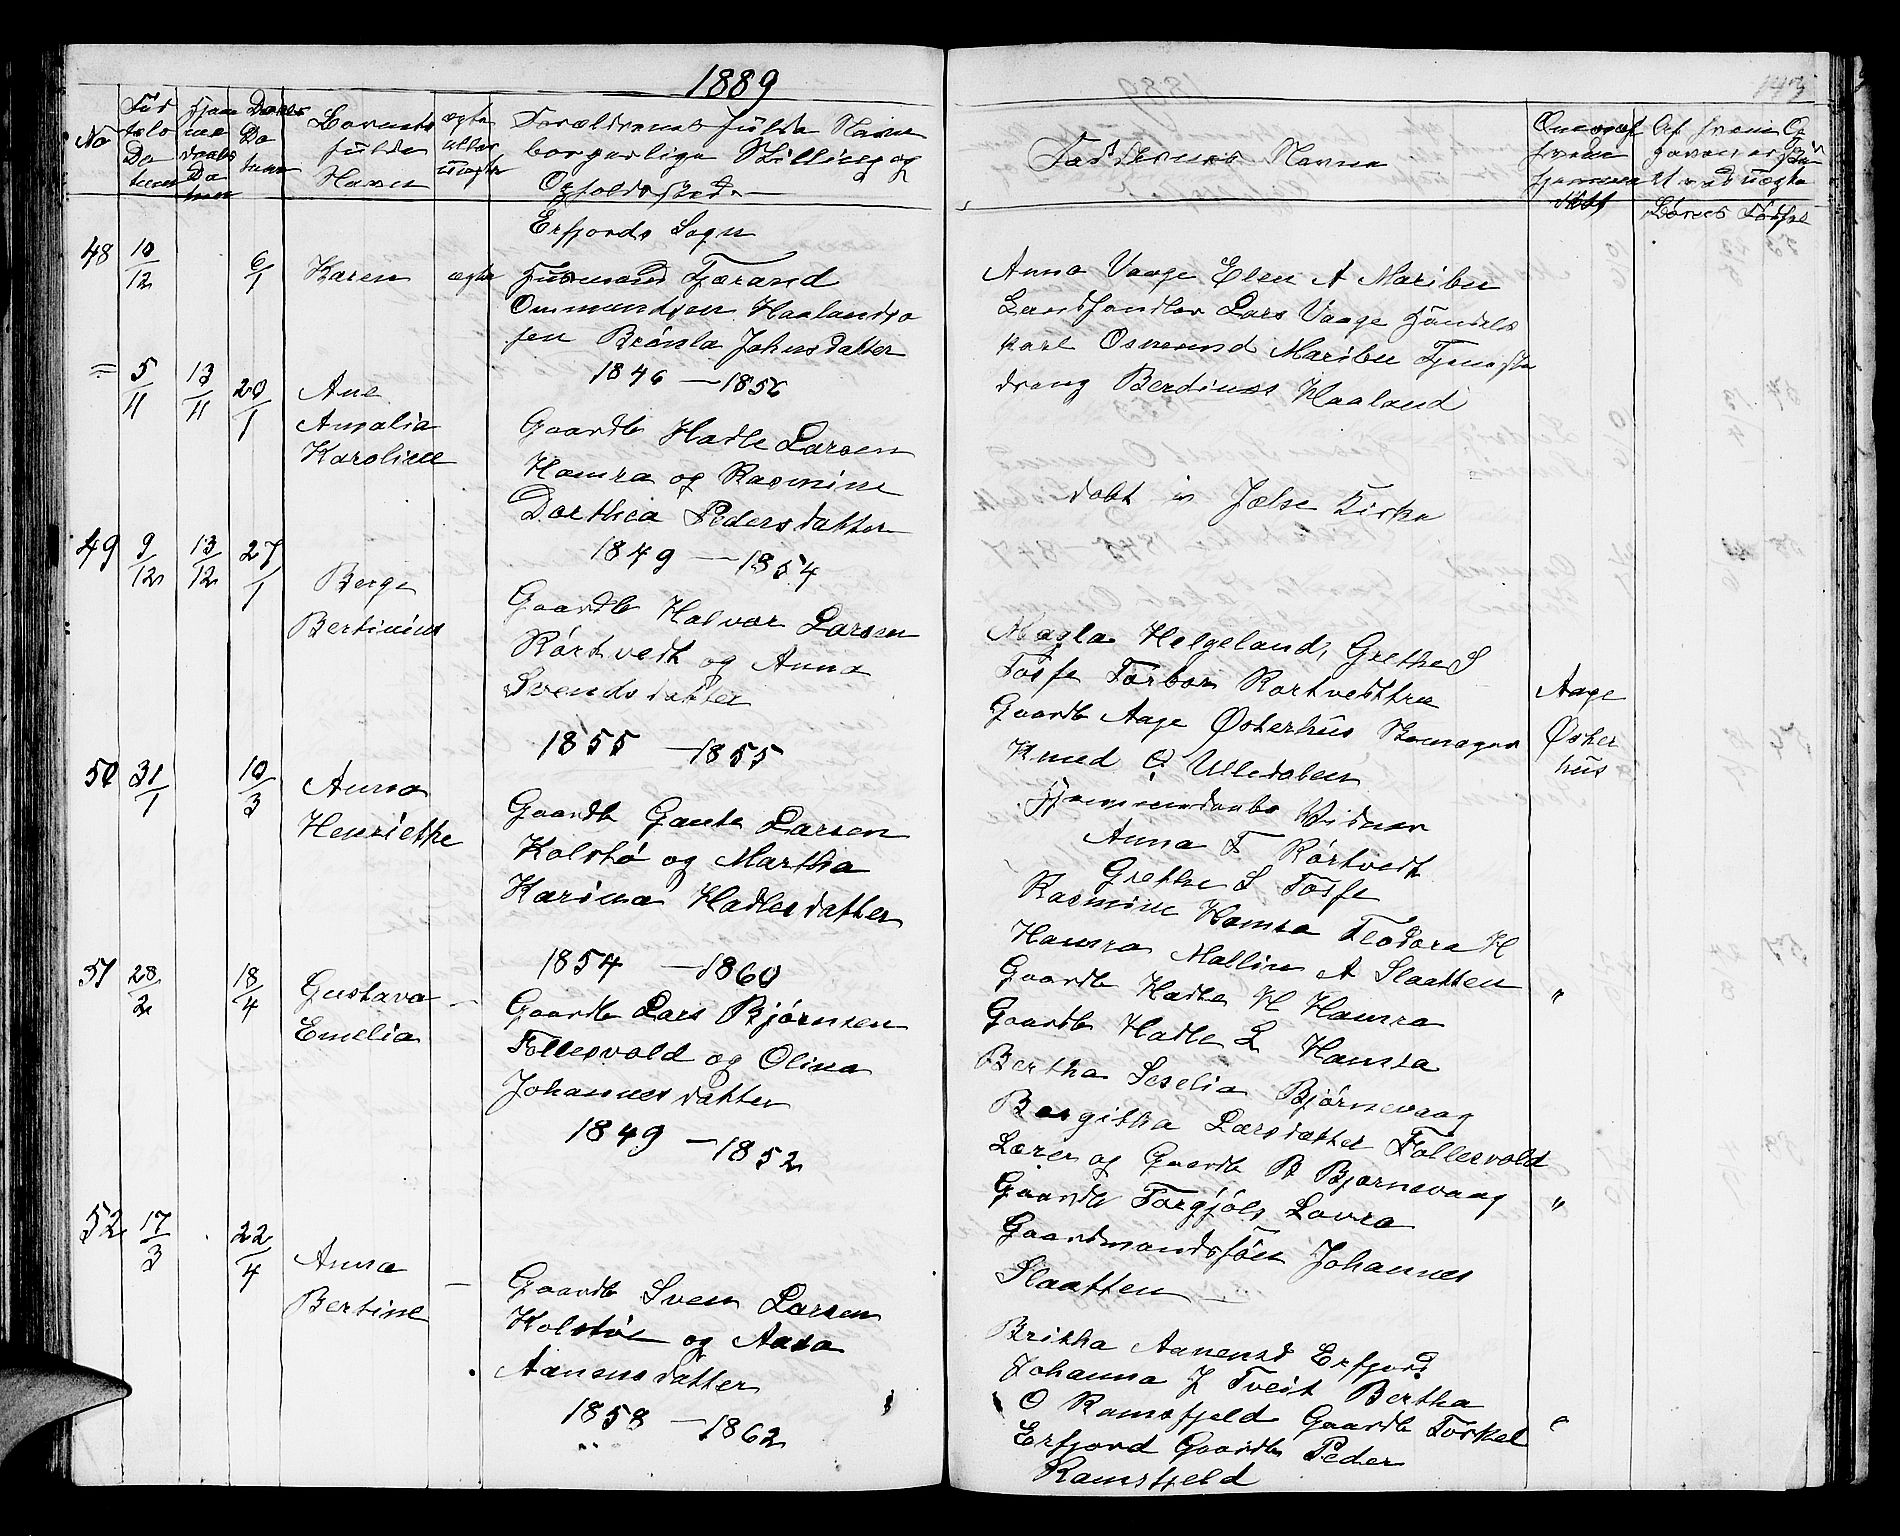 1889
143
No
Fød
sels
Da
tum
Hjem
me
daabs
Da
tum
Daabs
Da
tum
Barnets
fulde
Navn
ægte
eller
uægte
Forældrenes fulde Navn
borgerlige Stilling og
Opholdssted
Faddernes Navne
Erfjords Sogn
48 10/12 6/1 Karen ægte
Husmand Tjærand
Ommundsen Haalandso
sen Brønla Johnsdatter
1846 — 1856
Anna Vaage Elen A Maribu
Landhandler Lars Vaage Handels
karl Osmund Maribu Tjeneste
dreng Berdinus Haaland
= 5/11 13/11 20/1 Ane
Amalia
Karoline
Gaardb Hadle Larsen
Hamra og Rasmine
Dorthea Pedersdatter
1849 — 1854
døbt i Jælse Kirke
49 9/12 13/12 27/1 Berge
Bertinius
Gaardb Halvor Larsen
Rørtvedt og Anna
Svendsdatter
1855 — 1855
Magla Helgeland, Grethe S
Tosse Torbor Rørtvedt fra
Gaardb Aage Østerhus Skomager
Knud O Ulledalen
Hjemmedaabs Vidner
Anna T Rørtvedt
Grethe S Tosse
Aage
Øster
hus
50 31/1 10/3 Anna
Henriethe
Gaardb Gaute Larsen
Kolstø og Martha
Karina Hadlesdatter
1854 — 1860
Rasmine Hamra Teodora H
Hamra Mallin A Slaatten
Gaardb Hadle H Hamra
Gaardb Hadle L Hamra
"
51 28/2 18/4 Gustava —
Emelia
Gaardb Lars Bjørnsen
Follesvold og Olina
Johannesdatter
1849 — 1852
Bertha Seselia Bjørnevaag
Borgitha Larsdatter Follesvold
Lærer og Gaardb B Bjørnevaag
Gaardb Torgjøls Lovra
Gaardmandssøn Johannes
Slaatten —
"
52 17/3 22/4 Anna —
Bertine
Gaardb Sven Larsen
Kolstøe og Aasa
Aanensdatter
1858 — 1862
Britha Aanensd Erfjord
Johanna J Tveit Bertha
O Ramsfjeld Gaardb Torkel
Erfjord Gaardb Peder
Ramsfjeld
"